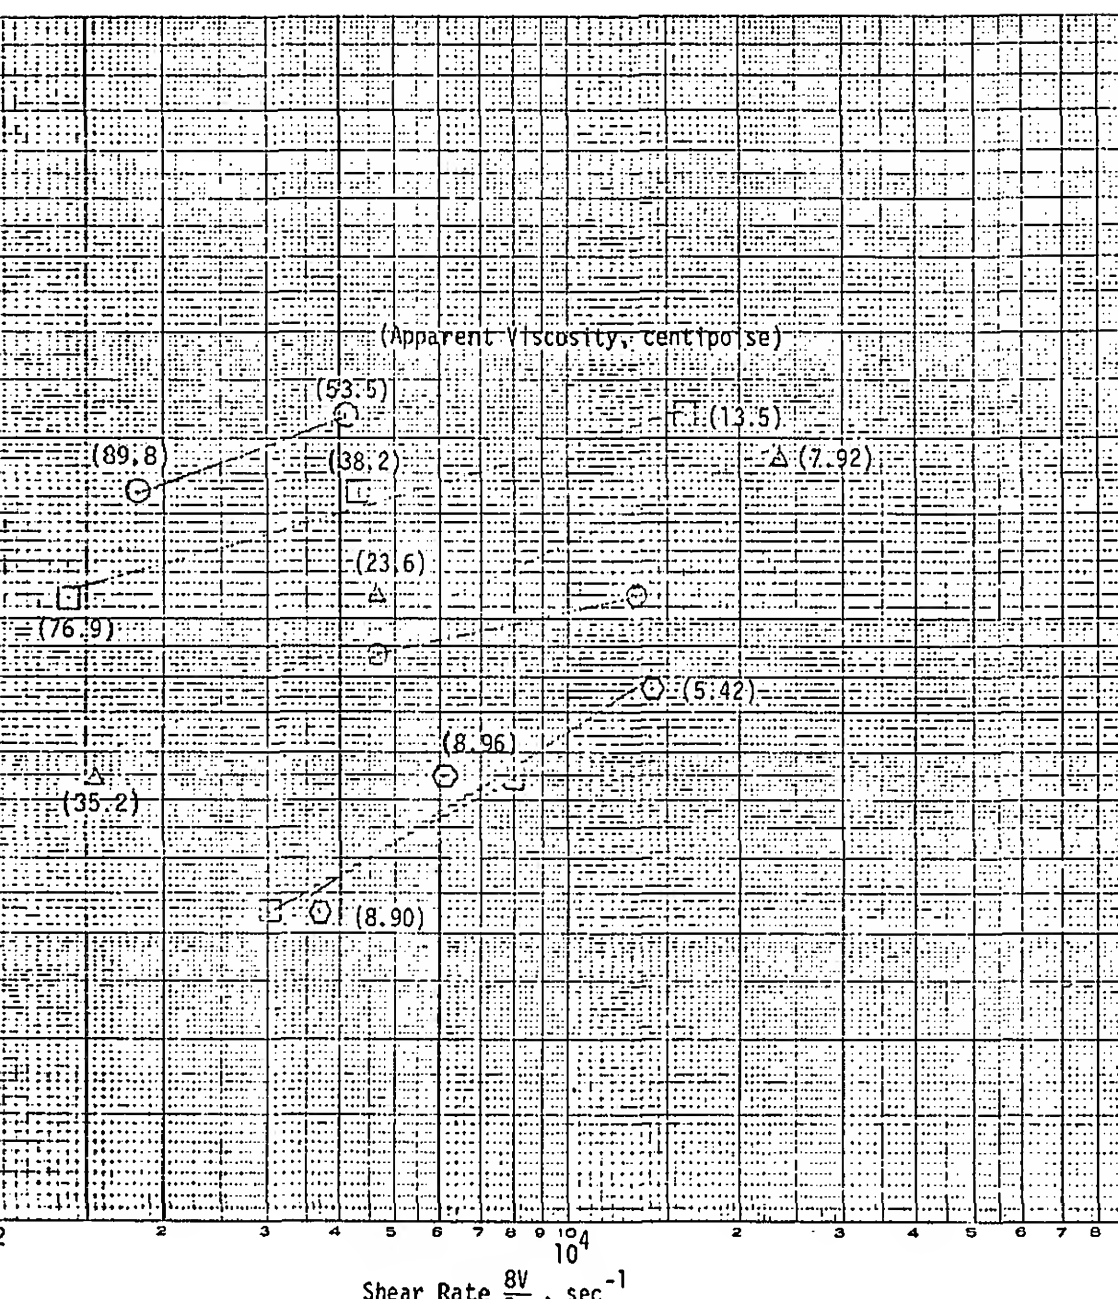 (Apparent Viscosity, centipoise)
(53.5)
(13.5)
(89.8)
(38.2)
(7.92)
(23.6)
(76.9)
(5.42)
(8.96)
(35.2)
(8.90)
2 3 4 5 6 7 8 9 10 2 3 4 5 6 7 8
10^4
Shear Rate 8V , sec^-1